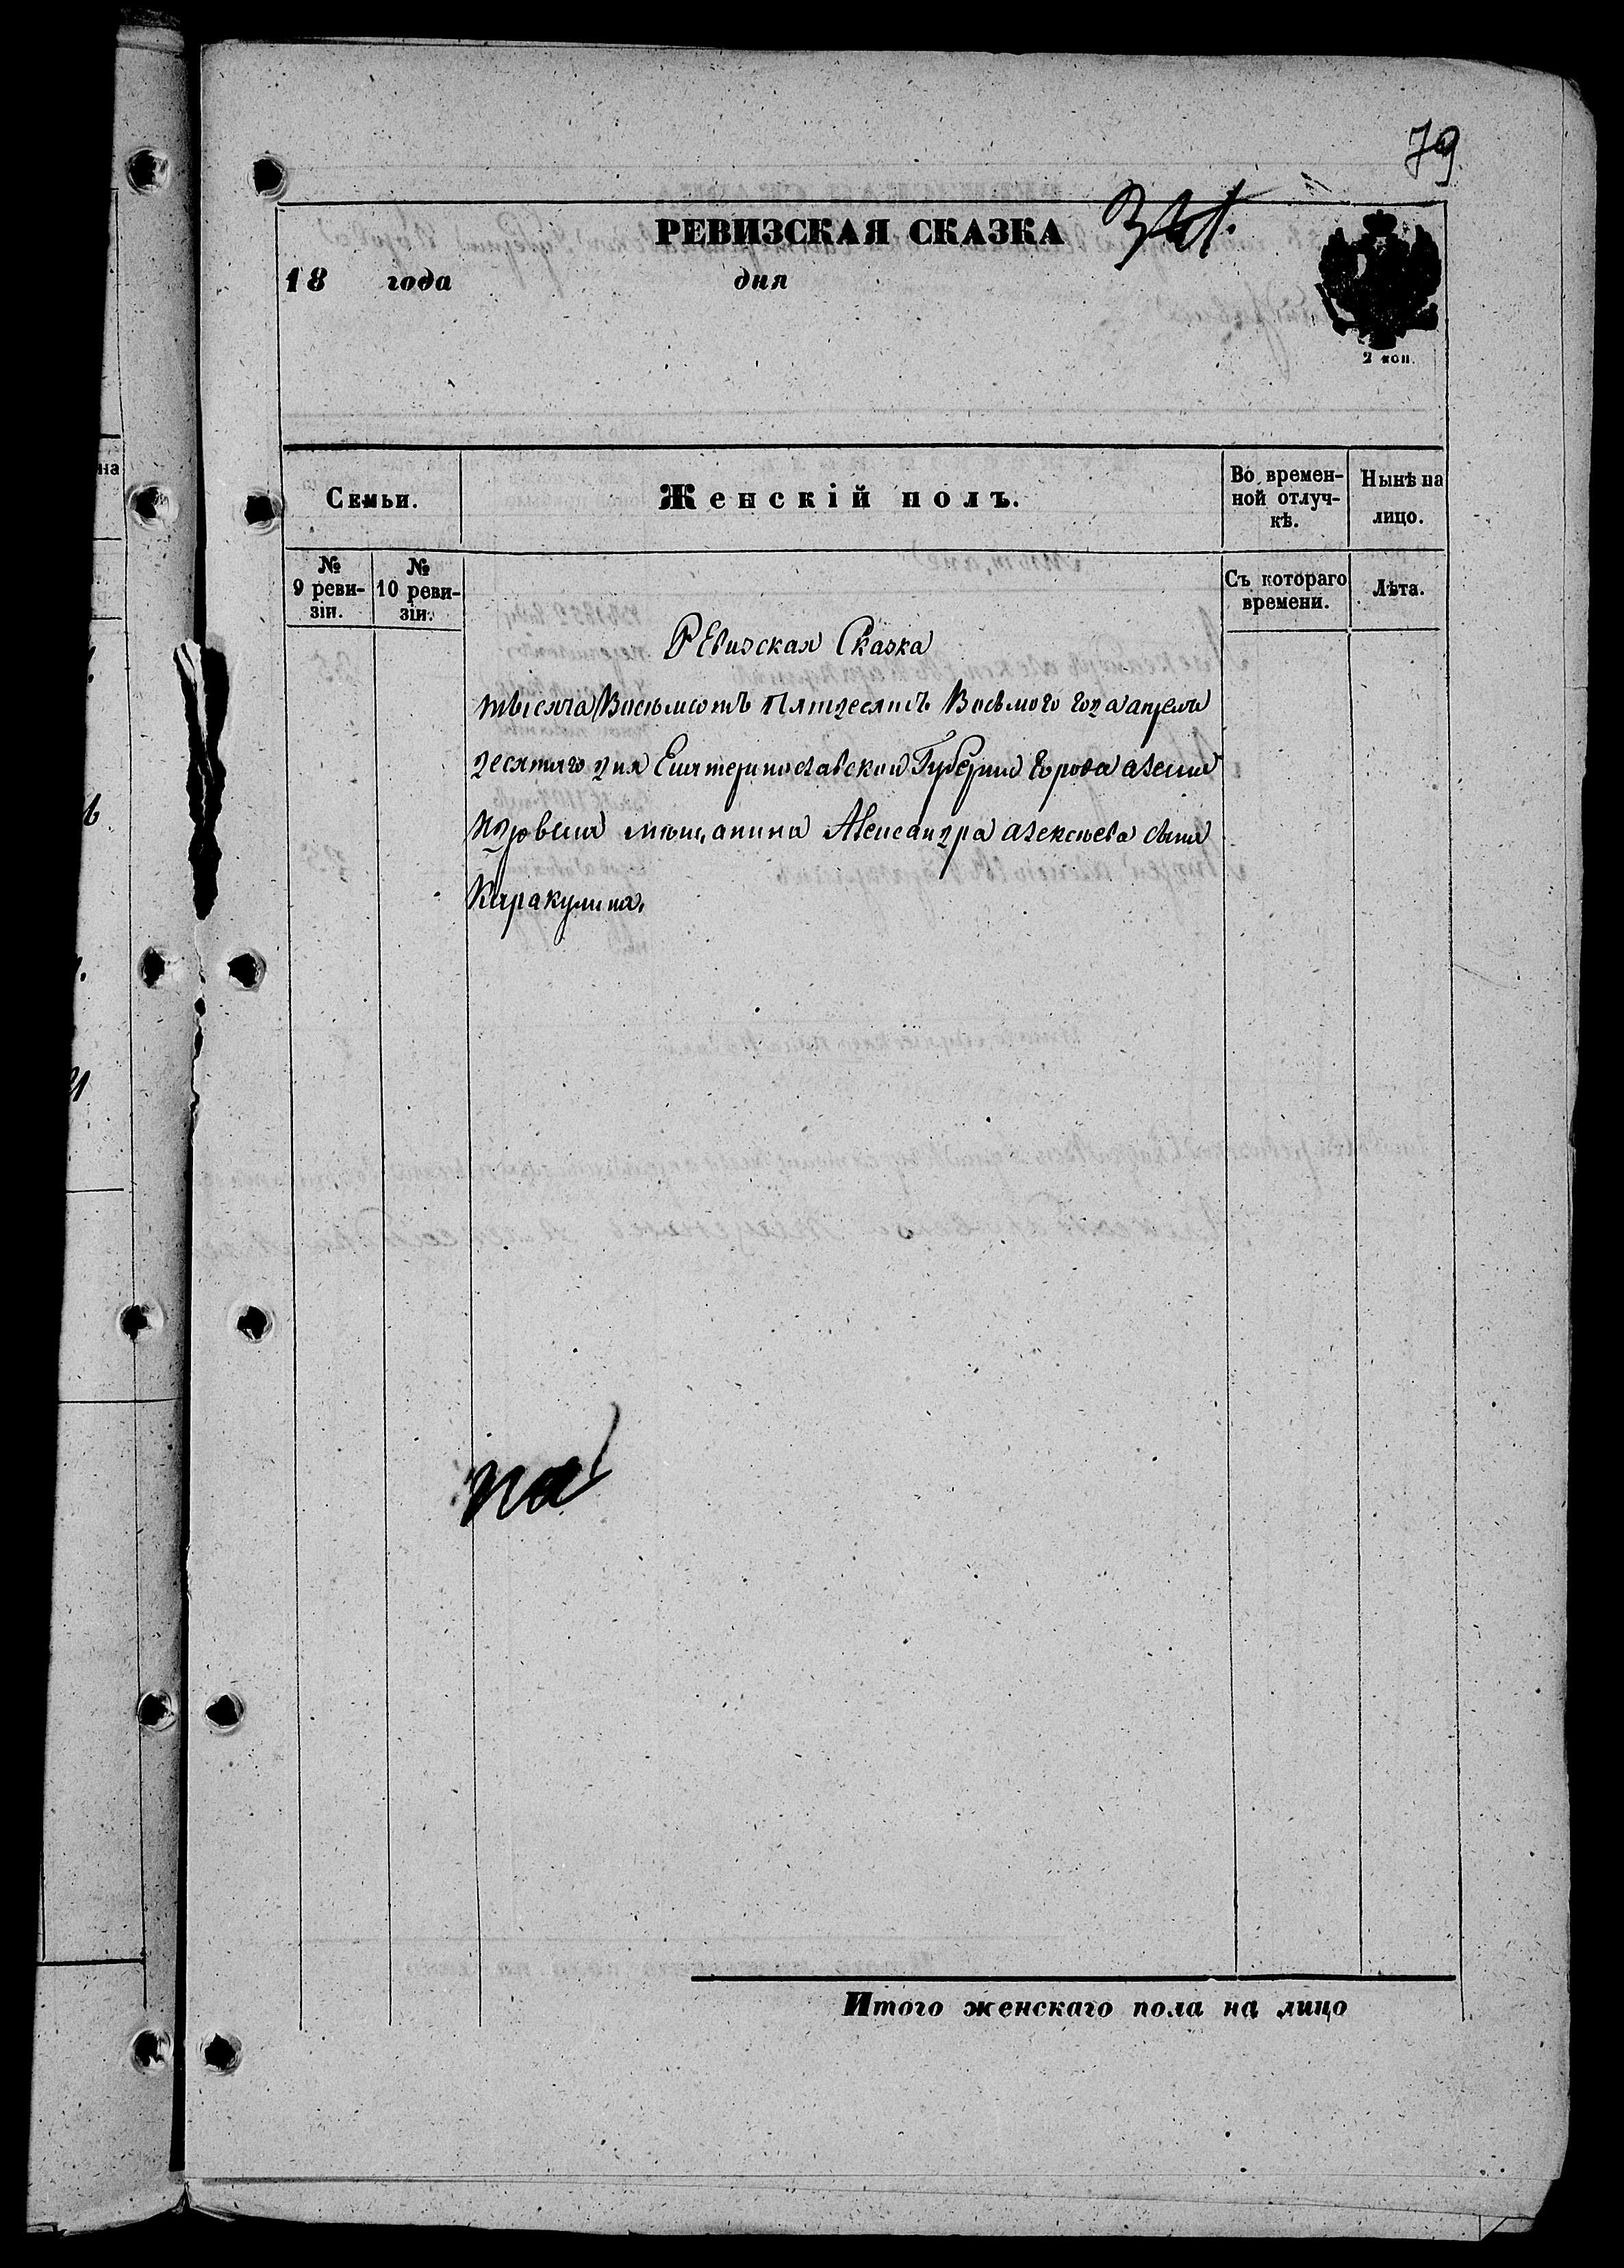 79
РЕВИЗСКАЯ СКАЗКА
18 года дня
2 коп.
Семьи.
Женскій полъ.
Во времен-
ной отлуч-
кѣ.
Нынѣ на
лицо.
№
9 реви-
зіи.
№
10 реви-
зіи.
Съ котораго
времени.
Лѣта.
Ревизская Сказка
тысяча Восьмсотъ Пятдесятъ Восьмого года апреля
десятаго дня Екатеринославской Губерніи города Алекса
ндровска мѣщанина Александра алексѣева сына
Каракулина,
на
Итого женскаго пола на лицо